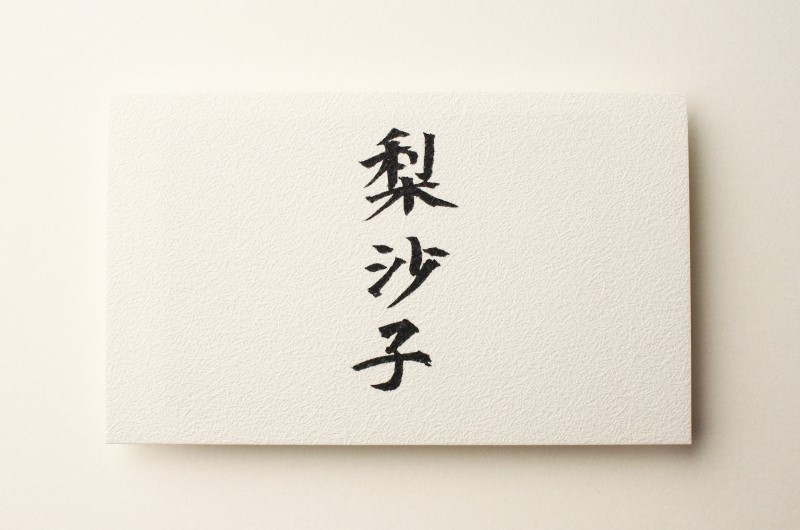 梨沙子